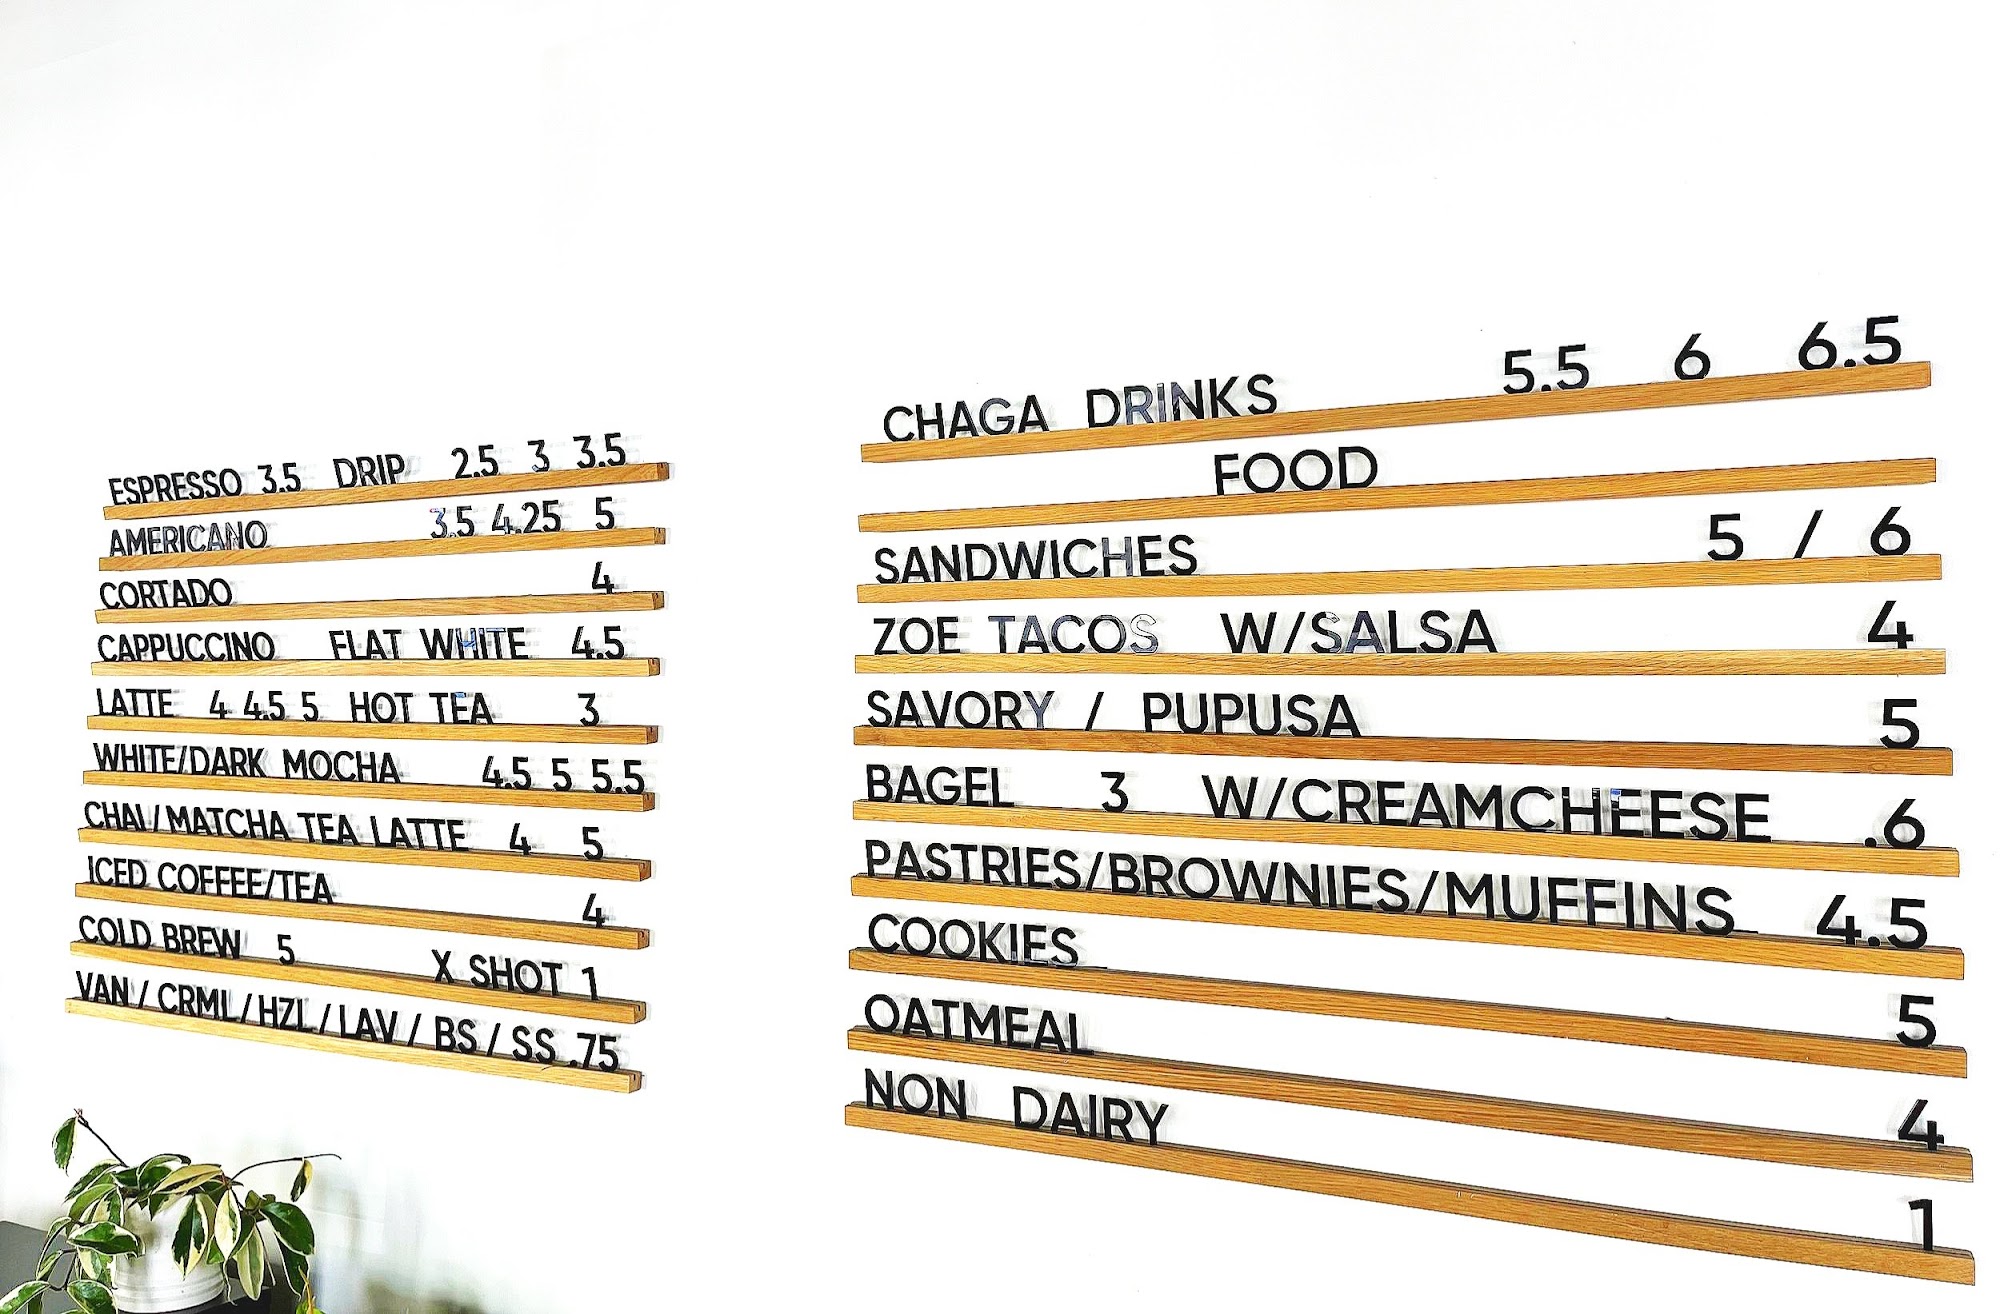 ESPRESSO 3.5 DRIP 2.5 3 3.5
AMERICANO 3.5 4.25 5
CORTADO 4
CAPPUCCINO FLAT WHITE 4.5
LATTE 4 4.5 5 HOT TEA 3
WHITE/DARK MOCHA 4.5 5 5.5
CHAI/MATCHA TEA LATTE 4 5
ICED COFFEE/TEA 4
COLD BREW 5 X SHOT 1
VAN/CRML/HZL/LAV/BS/SS .75
CHAGA DRINKS 5.5 6 6.5
FOOD
SANDWICHES 5 / 6
ZOE TACOS W/SALSA 4
SAVORY / PUPUSA 5
BAGEL 3 W/CREAMCHEESE .6
PASTRIES/BROWNIES/MUFFINS 4.5
COOKIES 5
OATMEAL 4
NON DAIRY 1